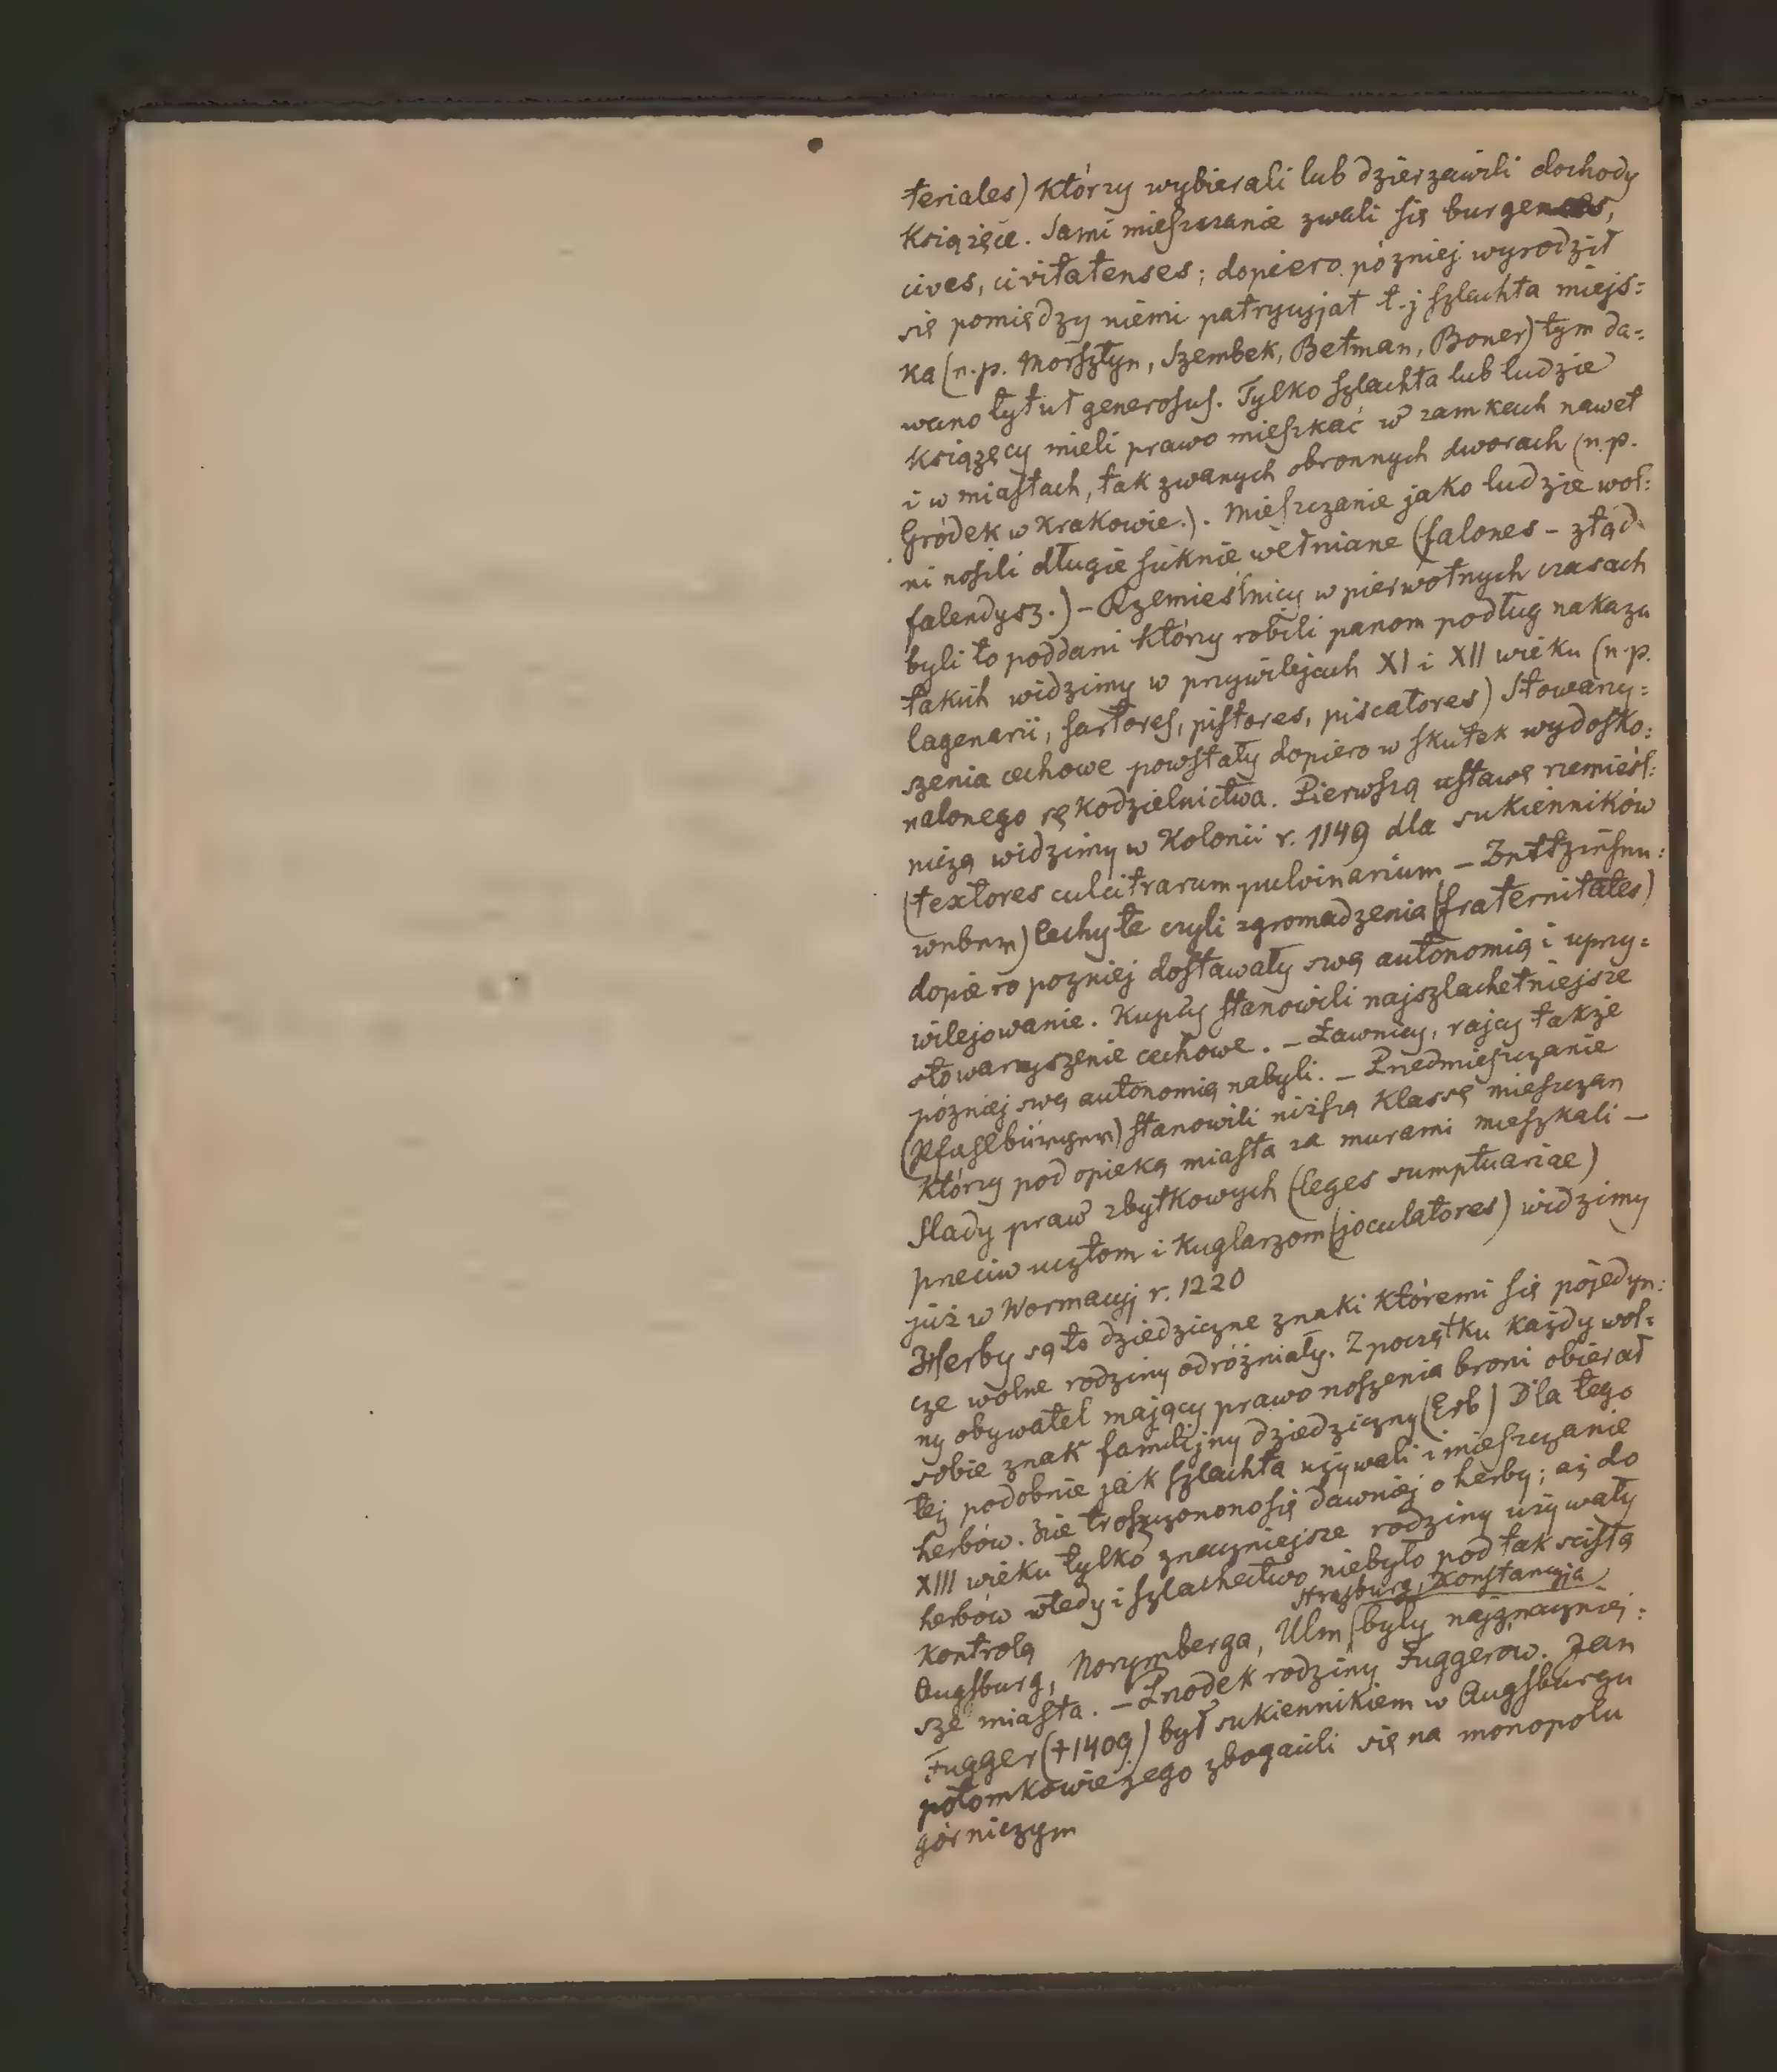 teriales) którzy wybierali lub dzierzawili dochody
książęce. Sami mieszczanie zwali się burgenses,
cives, civitatenses; dopiero pózniej wyrodził
się pomiędzy niemi patrycyjat t.j szlachta miejs=
ka (n.p. Morsztyn, Szembek, Betman, Boner) tym da=
wano tytuł generosus. Tylko szlachta lub ludzie
książęcy mieli prawo mieszkać w zamkach nawet
i w miastach, tak zwanych obronnych dworach (n.p.
Gródek w Krakowie.). Mieszczanie jako ludzie wol=
ni nosili długie suknie wełniane (falones - ztąd
falendysz.) - Rzemieślnicy w pierwotnych czasach
byli to poddani którzy robili panom podług nakazu
takich widzimy w przywilejach XI i XII wieku (n.p.
lagenarii, sartores, pistores, piscatores) Stowarzy=
szenia cechowe powstały dopiero w skutek wydosko=
nalonego rękodzielnictwa. Pierwszą ustawę rzemieśl=
niczą widzimy w Kolonii r. 1149 dla sukienników
(textores culcitrarum pulvinarium - Bettziehen=
weber) Cechy te czyli zgromadzenia (fraternitates)
dopiero pozniej dostawały swą autonomią i uprzy=
wilejowanie. Kupcy stanowili najszlachetniejsze
stowarzyszenie cechowe. - Ławnicy, rajcy także
pózniej swą autonomią nabyli. - Przedmieszczanie
(Pfahlbürger) stanowili niższą klassę mieszczan
którzy pod opieką miasta za murami mieszkali -
Slady praw zbytkowych (leges sumptuariae)
przeciw ucztom i kuglarzom (joculatores) widzimy
już w Wormacyj r. 1220
Herby są to dziedziczne znaki któremi się pojedyn=
cze wolne rodziny odróżniały. Z początku każdy wol=
ny obywatel mający prawo noszenia broni obierał
sobie znak familijny dziedziczny (Erb) Dla tego
też podobnie jak szlachta używali i mieszczanie
herbów. Nie troszczonono się dawniej o herby; aż do
XIII wieku tylko znaczniejsze rodziny używały
herbów wtedy i szlachectwo niebyło pod tak scisłą
kontrolą
Strasburg, Konstancyja
Augsburg, Norymberga, Ulm były najznaczniej=
sze miasta. - Środek rodziny Fuggerów. Jan
Fugger (+1409) był sukiennikiem w Augsburgu
potomkowie jego zbogacili się na monopolu
górniczym